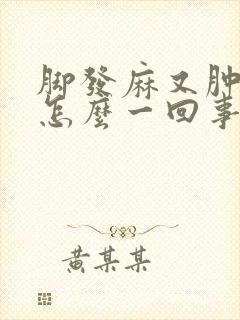 脚發麻又肿
怎麽一回事
黄某某